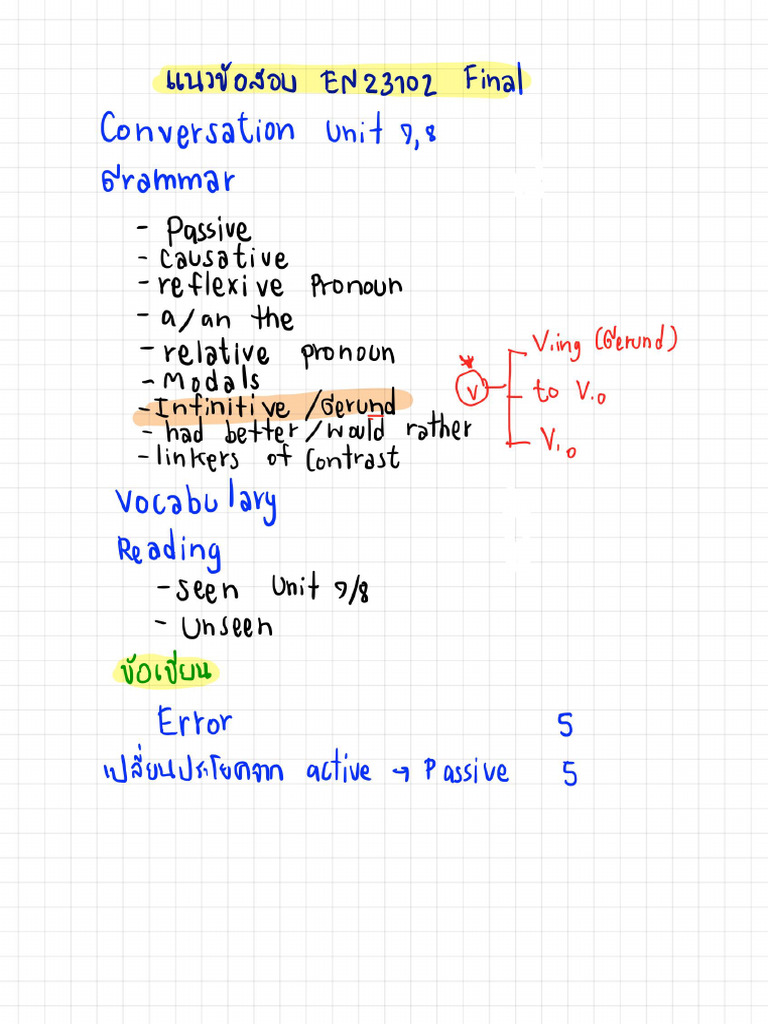 แนวข้อสอบ EN23102 Final
Conversation Unit 7,8
Grammar
- Passive
- causative
- reflexive Pronoun
- a/an the
- relative pronoun
- Modals
- Infinitive /Gerund
- had better/would rather
- linkers of Contrast
V
Ving (Gerund)
to V.0
V.0
Vocabulary
Reading
- seen Unit 7/8
- Unseen
ข้อเขียน
Error 5
เปลี่ยนประโยคจาก active → Passive 5